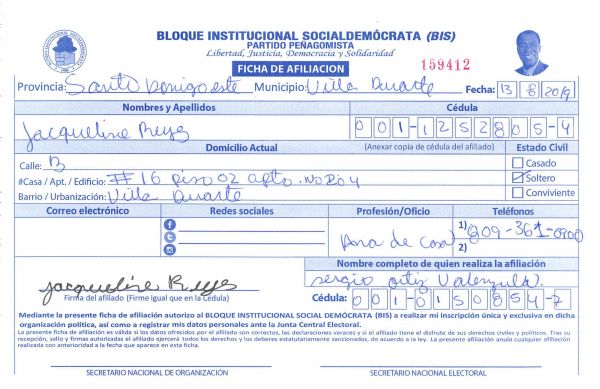 BLOQUE INSTITUCIONAL SOCIALDEMÓCRATA (BIS)
PARTIDO PEÑAGOMISTA
Libertad, Justicia, Democracia y Solidaridad
159412
FICHA DE AFILIACION
Provincia: Santo Domigo este Municipio: Villa Duarte Fecha: 13 8 2019
Nombres y Apellidos Cédula
Jacqueline Reyes 001-1252805-4
Domicilio Actual (Anexar copia de cédula del afiliado) Estado Civil
Calle: B Casado
#Casa / Apt. / Edificio: # 16 piso 02 apto. Soltero
Barrio / Urbanización: Villa Duarte Conviviente
Correo electrónico Redes sociales Profesión/Oficio Teléfonos
Ama de Casa 1) 809-361-0900
2)
Nombre completo de quien realiza la afiliación
Jacqueline Reyes sergio ortiz Valenzula.
Firma del afiliado (Firme igual que en la Cédula) Cédula: 001-0150854-7
Mediante la presente ficha de afiliación autorizo al BLOQUE INSTITUCIONAL SOCIAL DEMÓCRATA (BIS) a realizar mi inscripción única y exclusiva en dicha
organización política, así como a registrar mis datos personales ante la Junta Central Electoral.
La presente ficha de afiliación es válida si los datos ofrecidos por el afiliado son correctos, las declaraciones veraces y si el afiliado tiene el disfrute de sus derechos civiles y políticos. Tras su
recepción, sello y firmas autorizadas el afiliado ejercerá todos los derechos y los deberes estatutariamente sancionados, de acuerdo a la ley. La presente afiliación anula cualquier afiliación
realizada con anterioridad a la fecha que aparece en esta ficha.
SECRETARIO NACIONAL DE ORGANIZACIÓN SECRETARIO NACIONAL ELECTORAL